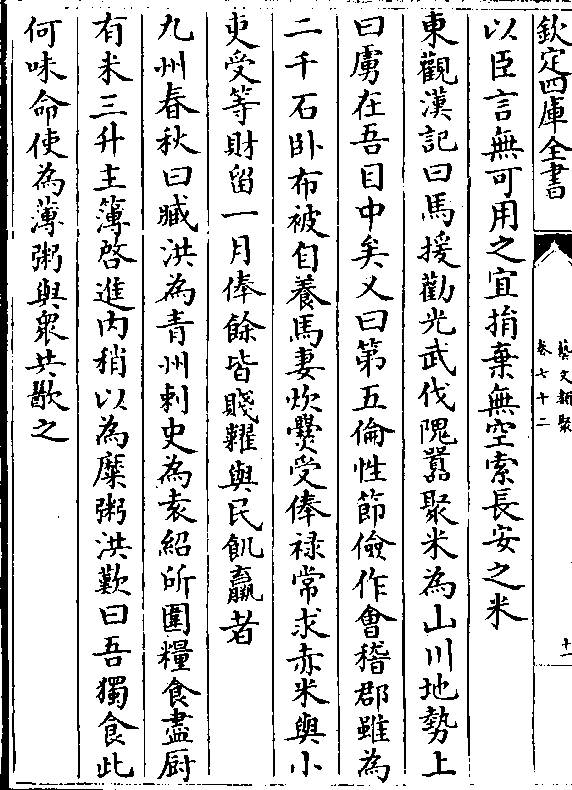 欽定四庫全書
藝文類聚
卷七十二
十一
以臣言無可用之宜捐棄無空索長安之米
東觀漢記曰馬援勸光武伐隗囂聚米為山川地勢上
曰虜在吾目中矣又曰第五倫性節儉作會稽郡雖為
二千石卧布被自養馬妻炊㸑受俸禄常求赤米與小
吏受等財留一月俸餘皆賤糶與民飢羸者
九州春秋曰臧洪為青州刺史為袁紹所圍糧食盡厨
有米三升主簿啓進内稍以為糜粥洪歎曰吾獨食此
何味命使為薄粥與衆共歠之